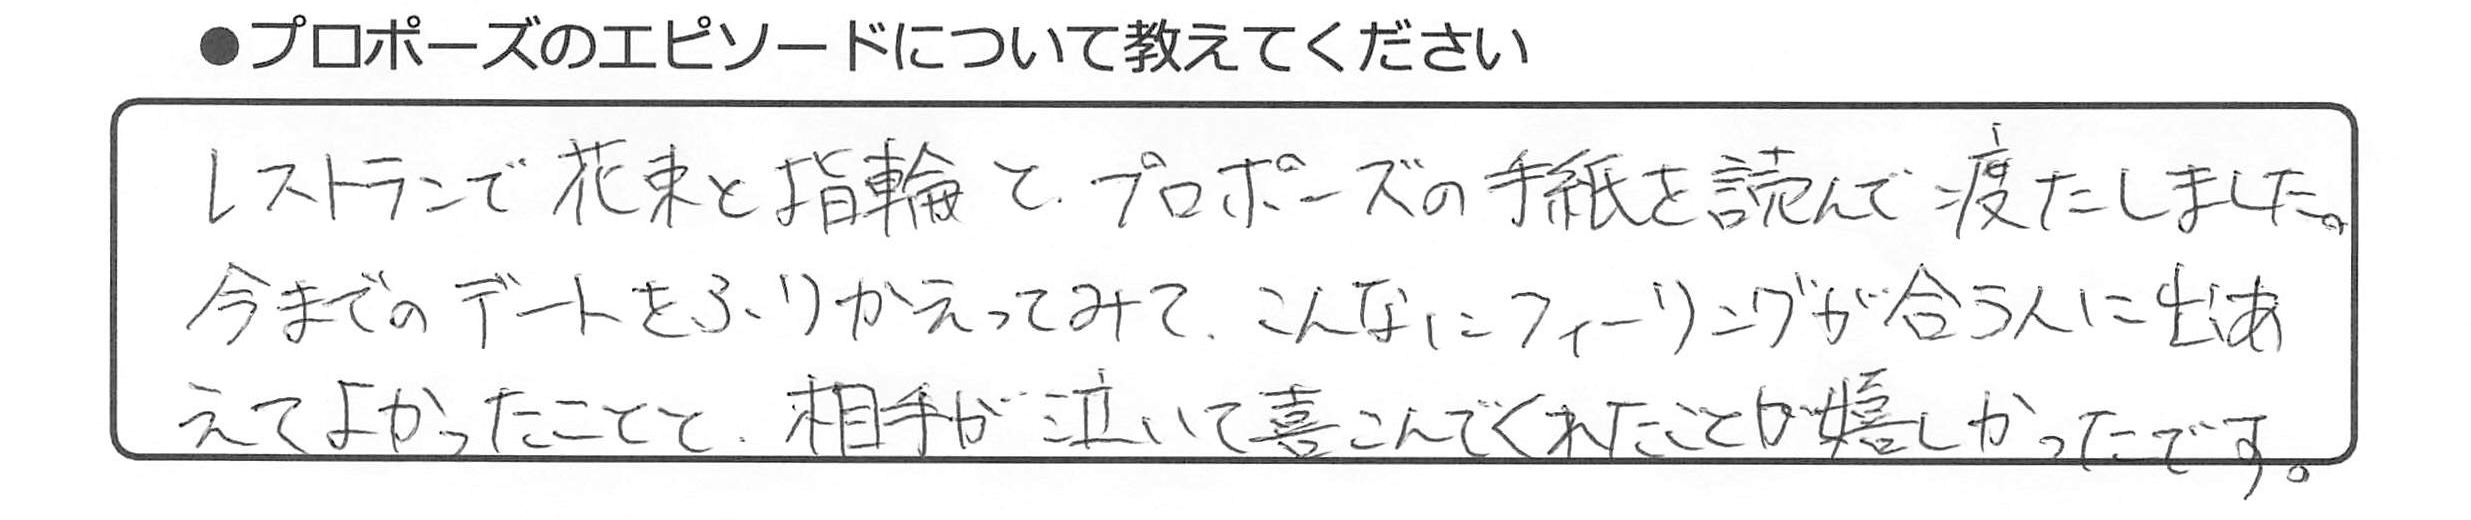 ●プロポーズのエピソードについて教えてください
レストランで花束と指輪と、プロポーズの手紙を読んで渡たしました。
今までのデートをふりかえってみて、こんなにフィーリングが合う人に出あ
えてよかったことと、相手が泣いて喜こんでくれたことが嬉しかったです。